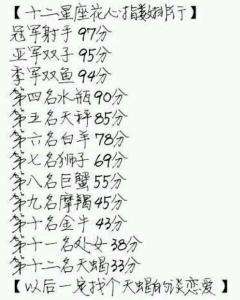 【十二星座花心指数排行】
冠军射手 97分
亚军双子 95分
季军双鱼 94分
第四名水瓶 90分
第五名天秤 85分
第六名白羊 78分
第七名狮子 69分
第八名巨蟹 55分
第九名摩羯 45分
第十名金牛 43分
第十一名处女 38分
第十二名天蝎 33分
【以后一定找个天蝎的谈恋爱】